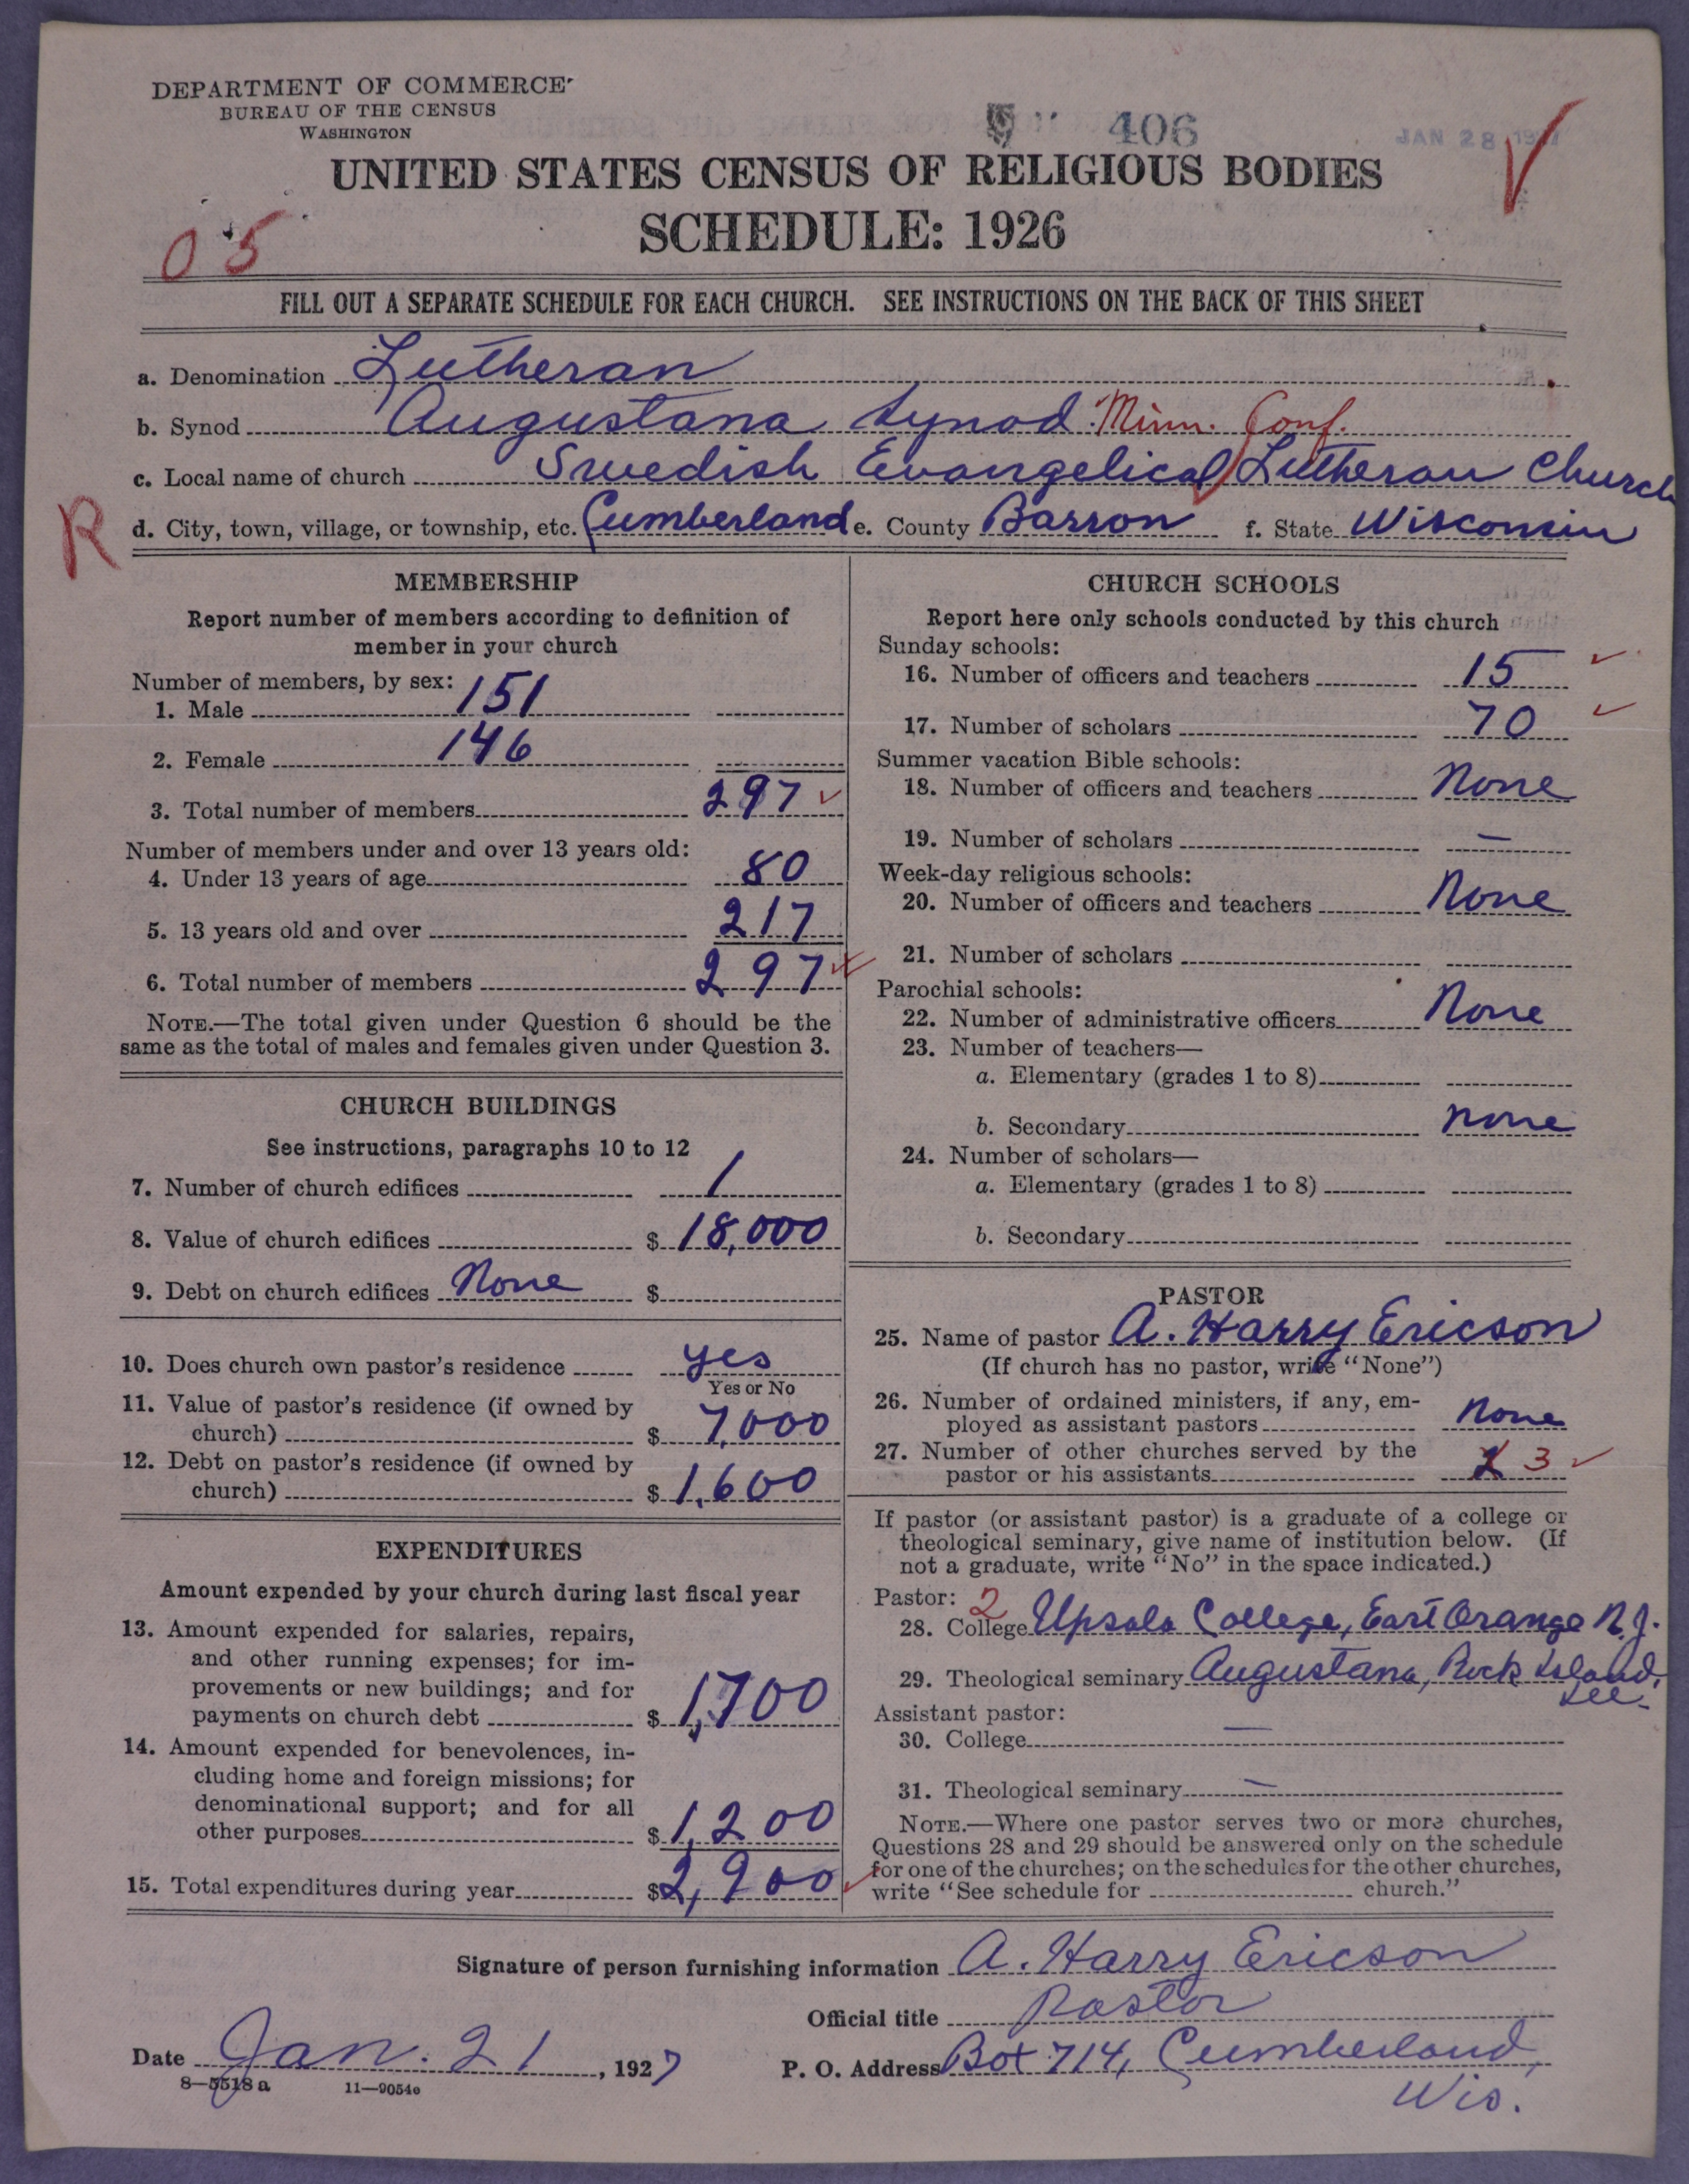 DEPARTMENT OF COMMERCE
BUREAU OF THE CENSUS
WASHINGTON
406
JAN 28
UNITED STATES CENSUS OF RELIGIOUS BODIES
SCHEDULE: 1926
05
FILL OUT A SEPARATE SCHEDULE FOR EACH CHURCH. SEE INSTRUCTIONS ON THE BACK OF THIS SHEET
a. Denomination Lutheran
b. Synod Augustana Synod Minn. Conf.
c. Local name of church Swedish Evangelical Lutheran Church
R
d. City, town, village, or township, etc. Cumberland e. County Barron f. State Wisconsin
MEMBERSHIP
Report number of members according to definition of
member in your church
Number of members, by sex:
1. Male 151
2. Female 146
3. Total number of members 297
Number of members under and over 13 years old:
4. Under 13 years of age 80
5. 13 years old and over 217
6. Total number of members 297
NOTE.—The total given under Question 6 should be the
same as the total of males and females given under Question 3.
CHURCH BUILDINGS
See instructions, paragraphs 10 to 12
7. Number of church edifices 1
8. Value of church edifices $ 18,000
9. Debt on church edifices None $
10. Does church own pastor's residence yes
Yes or No
11. Value of pastor's residence (if owned by
church) $ 7,000
12. Debt on pastor's residence (if owned by
church) $ 1,600
EXPENDITURES
Amount expended by your church during last fiscal year
13. Amount expended for salaries, repairs,
and other running expenses; for im-
provements or new buildings; and for
payments on church debt $ 1,700
14. Amount expended for benevolences, in-
cluding home and foreign missions; for
denominational support; and for all
other purposes $ 1,200
15. Total expenditures during year $ 2,900
CHURCH SCHOOLS
Report here only schools conducted by this church
Sunday schools:
16. Number of officers and teachers 15
17. Number of scholars 70
Summer vacation Bible schools:
18. Number of officers and teachers None
19. Number of scholars —
Week-day religious schools:
20. Number of officers and teachers None
21. Number of scholars
Parochial schools:
22. Number of administrative officers None
23. Number of teachers—
a. Elementary (grades 1 to 8)
b. Secondary none
24. Number of scholars—
a. Elementary (grades 1 to 8)
b. Secondary
PASTOR
25. Name of pastor A. Harry Ericson
(If church has no pastor, write "None")
26. Number of ordained ministers, if any, em-
ployed as assistant pastors None
27. Number of other churches served by the
pastor or his assistants 3
If pastor (or assistant pastor) is a graduate of a college or
theological seminary, give name of institution below. (If
not a graduate, write "No" in the space indicated.)
Pastor: 2
28. College Upsala College, East Orange N.J.
29. Theological seminary Augustana, Rock Island,
Ill.
Assistant pastor:
30. College —
31. Theological seminary —
NOTE.—Where one pastor serves two or more churches,
Questions 28 and 29 should be answered only on the schedule
for one of the churches; on the schedules for the other churches,
write "See schedule for church."
Signature of person furnishing information A. Harry Ericson
Official title Pastor
Date Jan. 21, 1927
P. O. Address Box 714, Cumberland,
Wis.
8—5518 a 11—9054e